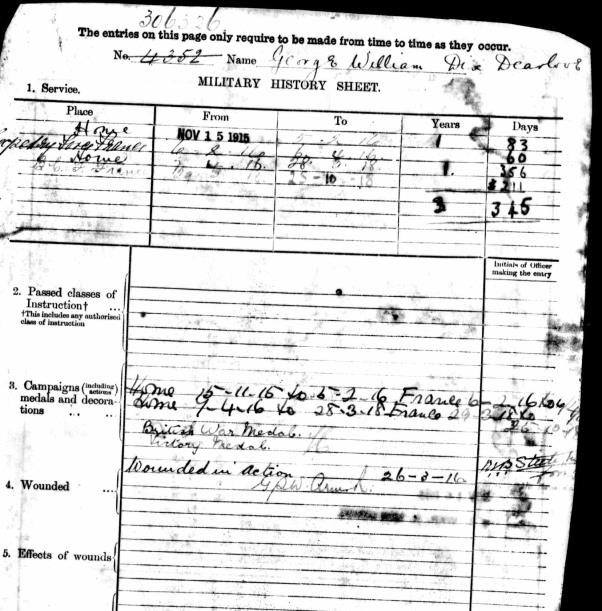 306326
The entries on this page only require to be made from time to time as they occur.
No. 4352 Name George William Dix Dearlove
MILITARY HISTORY SHEET.
1. Service.
Place From To Years Days
Home NOV 15 1915 5-2-16 1 83
France 6-2-16 60
Home 7-4-16 28-3-18 1 356
France 25-10-18 211
3 345
Initials of Officer
making the entry
2. Passed classes of
Instruction† ...
†This includes any authorised
class of instruction
3. Campaigns (including actions)
medals and decora-
tions .. ..
Home 15-11-15 to 5-2-16 France 6-2-16 to
Home 7-4-16 to 28-3-18 France 29-3-18 to
British War Medal.
Victory Medal.
4. Wounded ...
Wounded in Action 26-3-16
5. Effects of wounds